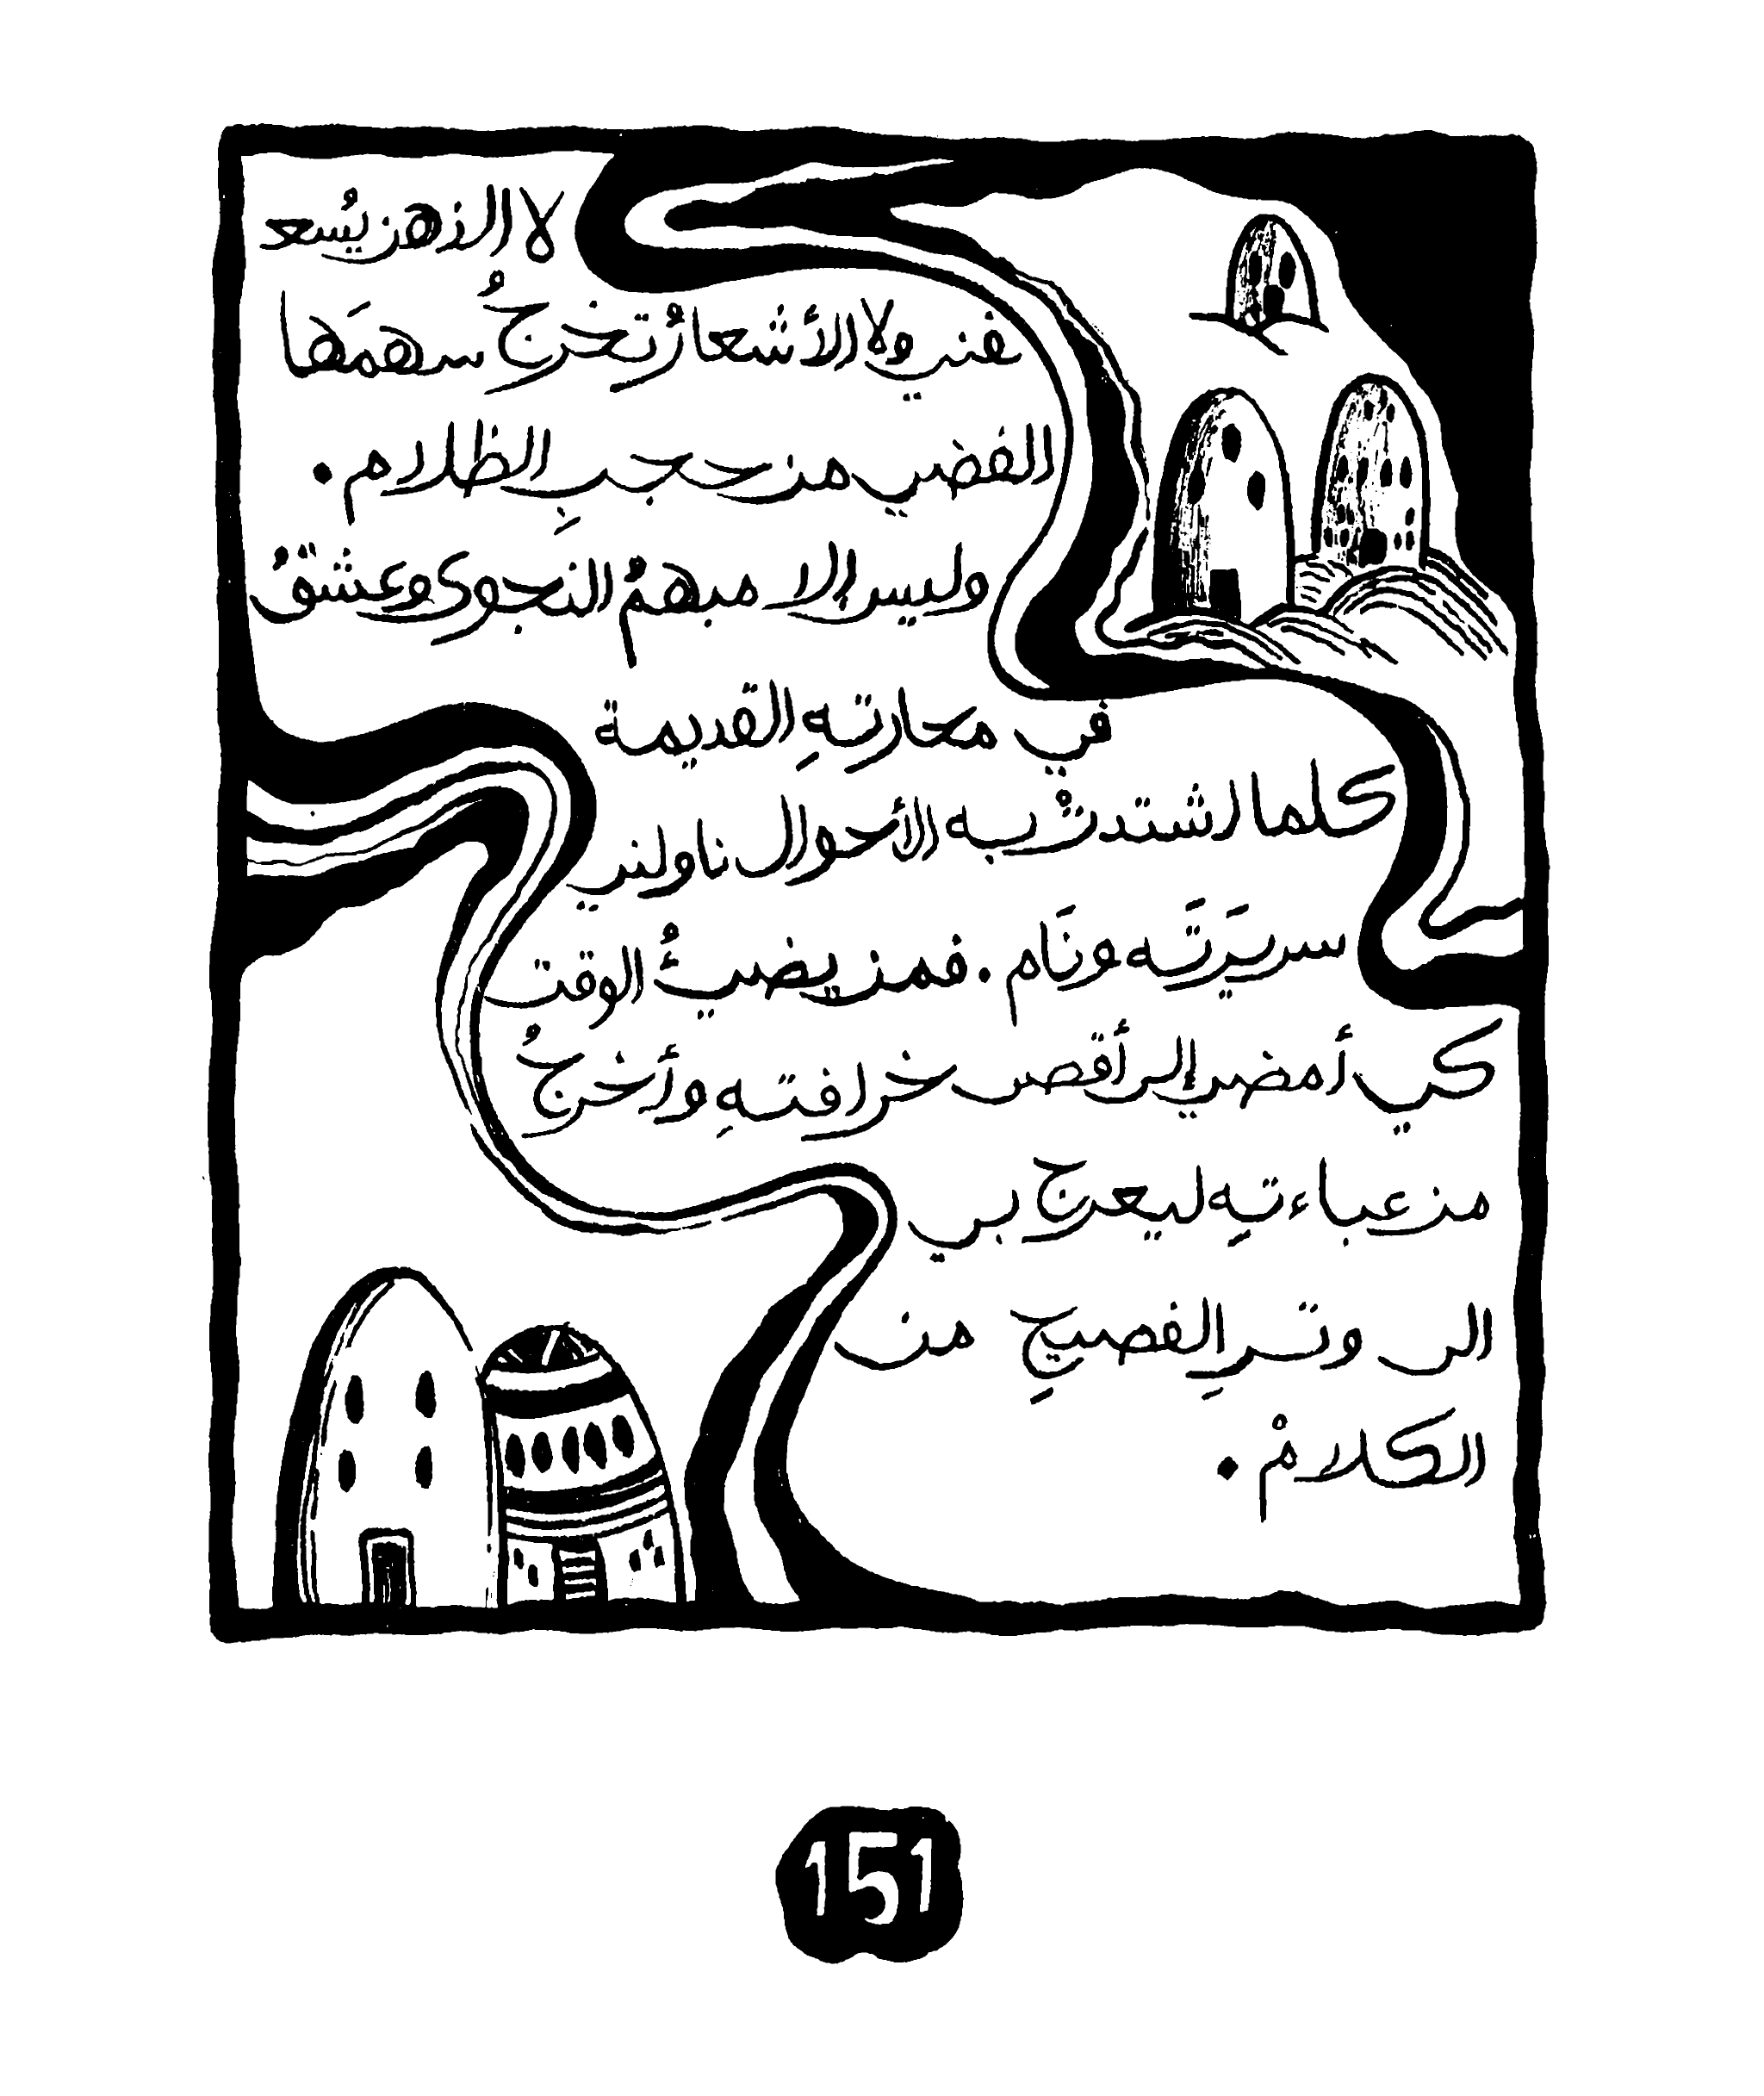 لا الذهن يُسعـ
ـفني ولا الأشعارُ تخرجُ سهمَها
الفضي من حجبِ الظلام .
وليس إلا مبهمُ النجوى وعشقُ
في محارتهِ القديمة
كلما اشتدتْ به الأحوال ناولني
سريرَتَه ونَام . فمن يضيءُ الوقت
كي أمضي إلى أقصى خرافتهِ وأخرجُ
من عباءتهِ ليعرج بي
الى وترِ الفصيحِ من
الكلامْ .
151